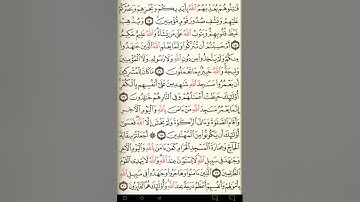 قَٰتِلُوهُمْ يُعَذِّبْهُمُ ٱللَّهُ بِأَيْدِيكُمْ وَيُخْزِهِمْ وَيَنصُرْكُمْ
عَلَيْهِمْ وَيَشْفِ صُدُورَ قَوْمٍ مُّؤْمِنِينَ ١٤ وَيُذْهِبْ
غَيْظَ قُلُوبِهِمْ وَيَتُوبُ ٱللَّهُ عَلَىٰ مَن يَشَآءُ وَٱللَّهُ عَلِيمٌ حَكِيمٌ
١٥ أَمْ حَسِبْتُمْ أَن تُتْرَكُوا۟ وَلَمَّا يَعْلَمِ ٱللَّهُ ٱلَّذِينَ جَٰهَدُوا۟
مِنكُمْ وَلَمْ يَتَّخِذُوا۟ مِن دُونِ ٱللَّهِ وَلَا رَسُولِهِۦ وَلَا ٱلْمُؤْمِنِينَ
وَلِيجَةً وَٱللَّهُ خَبِيرٌۢ بِمَا تَعْمَلُونَ ١٦ مَا كَانَ لِلْمُشْرِكِينَ
أَن يَعْمُرُوا۟ مَسَٰجِدَ ٱللَّهِ شَٰهِدِينَ عَلَىٰٓ أَنفُسِهِم بِٱلْكُفْرِ
أُو۟لَٰٓئِكَ حَبِطَتْ أَعْمَٰلُهُمْ وَفِى ٱلنَّارِ هُمْ خَٰلِدُونَ ١٧
إِنَّمَا يَعْمُرُ مَسَٰجِدَ ٱللَّهِ مَنْ ءَامَنَ بِٱللَّهِ وَٱلْيَوْمِ ٱلْءَاخِرِ
وَأَقَامَ ٱلصَّلَوٰةَ وَءَاتَى ٱلزَّكَوٰةَ وَلَمْ يَخْشَ إِلَّا ٱللَّهَ فَعَسَىٰٓ
أُو۟لَٰٓئِكَ أَن يَكُونُوا۟ مِنَ ٱلْمُهْتَدِينَ ١٨ ۞ أَجَعَلْتُمْ سِقَايَةَ
ٱلْحَآجِّ وَعِمَارَةَ ٱلْمَسْجِدِ ٱلْحَرَامِ كَمَنْ ءَامَنَ بِٱللَّهِ وَٱلْيَوْمِ ٱلْءَاخِرِ
وَجَٰهَدَ فِى سَبِيلِ ٱللَّهِ لَا يَسْتَوُۥنَ عِندَ ٱللَّهِ وَٱللَّهُ لَا يَهْدِى ٱلْقَوْمَ
ٱلظَّٰلِمِينَ ١٩ ٱلَّذِينَ ءَامَنُوا۟ وَهَاجَرُوا۟ وَجَٰهَدُوا۟ فِى سَبِيلِ ٱللَّهِ
بِأَمْوَٰلِهِمْ وَأَنفُسِهِمْ أَعْظَمُ دَرَجَةً عِندَ ٱللَّهِ وَأُو۟لَٰٓئِكَ هُمُ ٱلْفَآئِزُونَ ٢٠